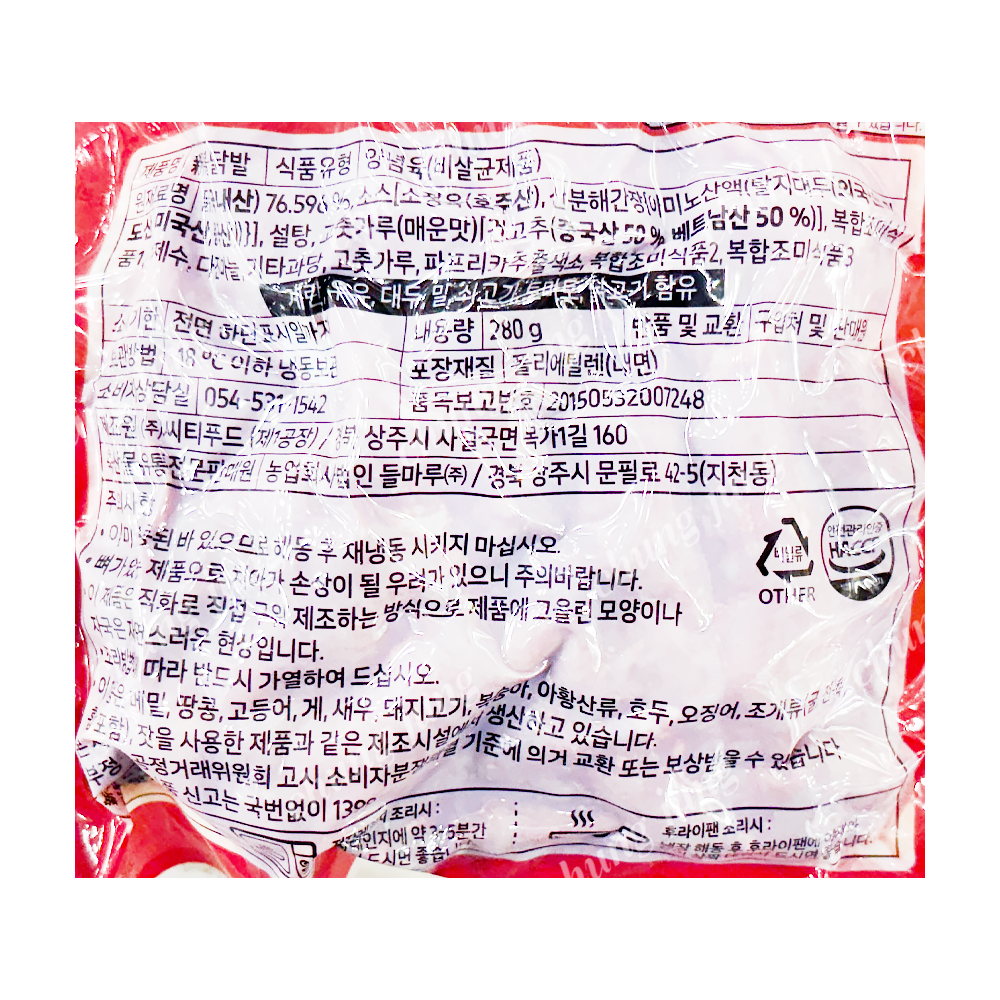 제품명 닭발 식품유형 양념육(비살균제품)
76.596 %, 소스[소정유(호주산), 산분해간장{아미노산액(탈지대두(외국산
미국산, 설탕, 고춧가루(매운맛)[건고추(중국산 50 %, 베트남산 50 %)], 복합조미식
품1, 정제수, 다진마늘, 기타과당, 고춧가루, 파프리카추출색소, 복합조미식품2, 복합조미식품3
새우, 대두, 밀, 쇠고기, 닭고기 함유
전면 하단 표시일까지 내용량 280 g 반품 및 교환 구입처 및 판매원
보관방법 -18 ℃ 이하 냉동보관 포장재질 폴리에틸렌(내면)
소비자상담실 054-531-1542 품목보고번호 201505532007248
제조원 (주)씨티푸드 (제1공장) / 경북 상주시 사벌국면 목가1길 160
축산물유통전문판매원 농업회사법인 들마루(주) / 경북 상주시 문필로 42-5(지천동)
주의사항
• 이미 된 바 있으므로 해동 후 재냉동 시키지 마십시오.
• 뼈가 제품으로 치아가 손상이 될 우려가 있으니 주의바랍니다.
이 제품은 직화로 직접 구워 제조하는 방식으로 제품에 그을린 모양이나
자국은 자연스러운 현상입니다.
따라 반드시 가열하여 드십시오.
메밀, 땅콩, 고등어, 게, 새우, 돼지고기, 복숭아, 아황산류, 호두, 오징어, 조개류(굴
포함), 잣을 사용한 제품과 같은 제조시설에서 생산하고 있습니다.
공정거래위원회 고시 소비자분쟁해결 기준에 의거 교환 또는 보상받을 수 있습니다.
신고는 국번없이 1399
안전관리인증
HACCP
비닐류
OTHER
조리시 :
전자레인지에 약 3~5분간
드시면 좋습니다.
후라이팬 조리시 :
냉장 해동 후 후라이팬에